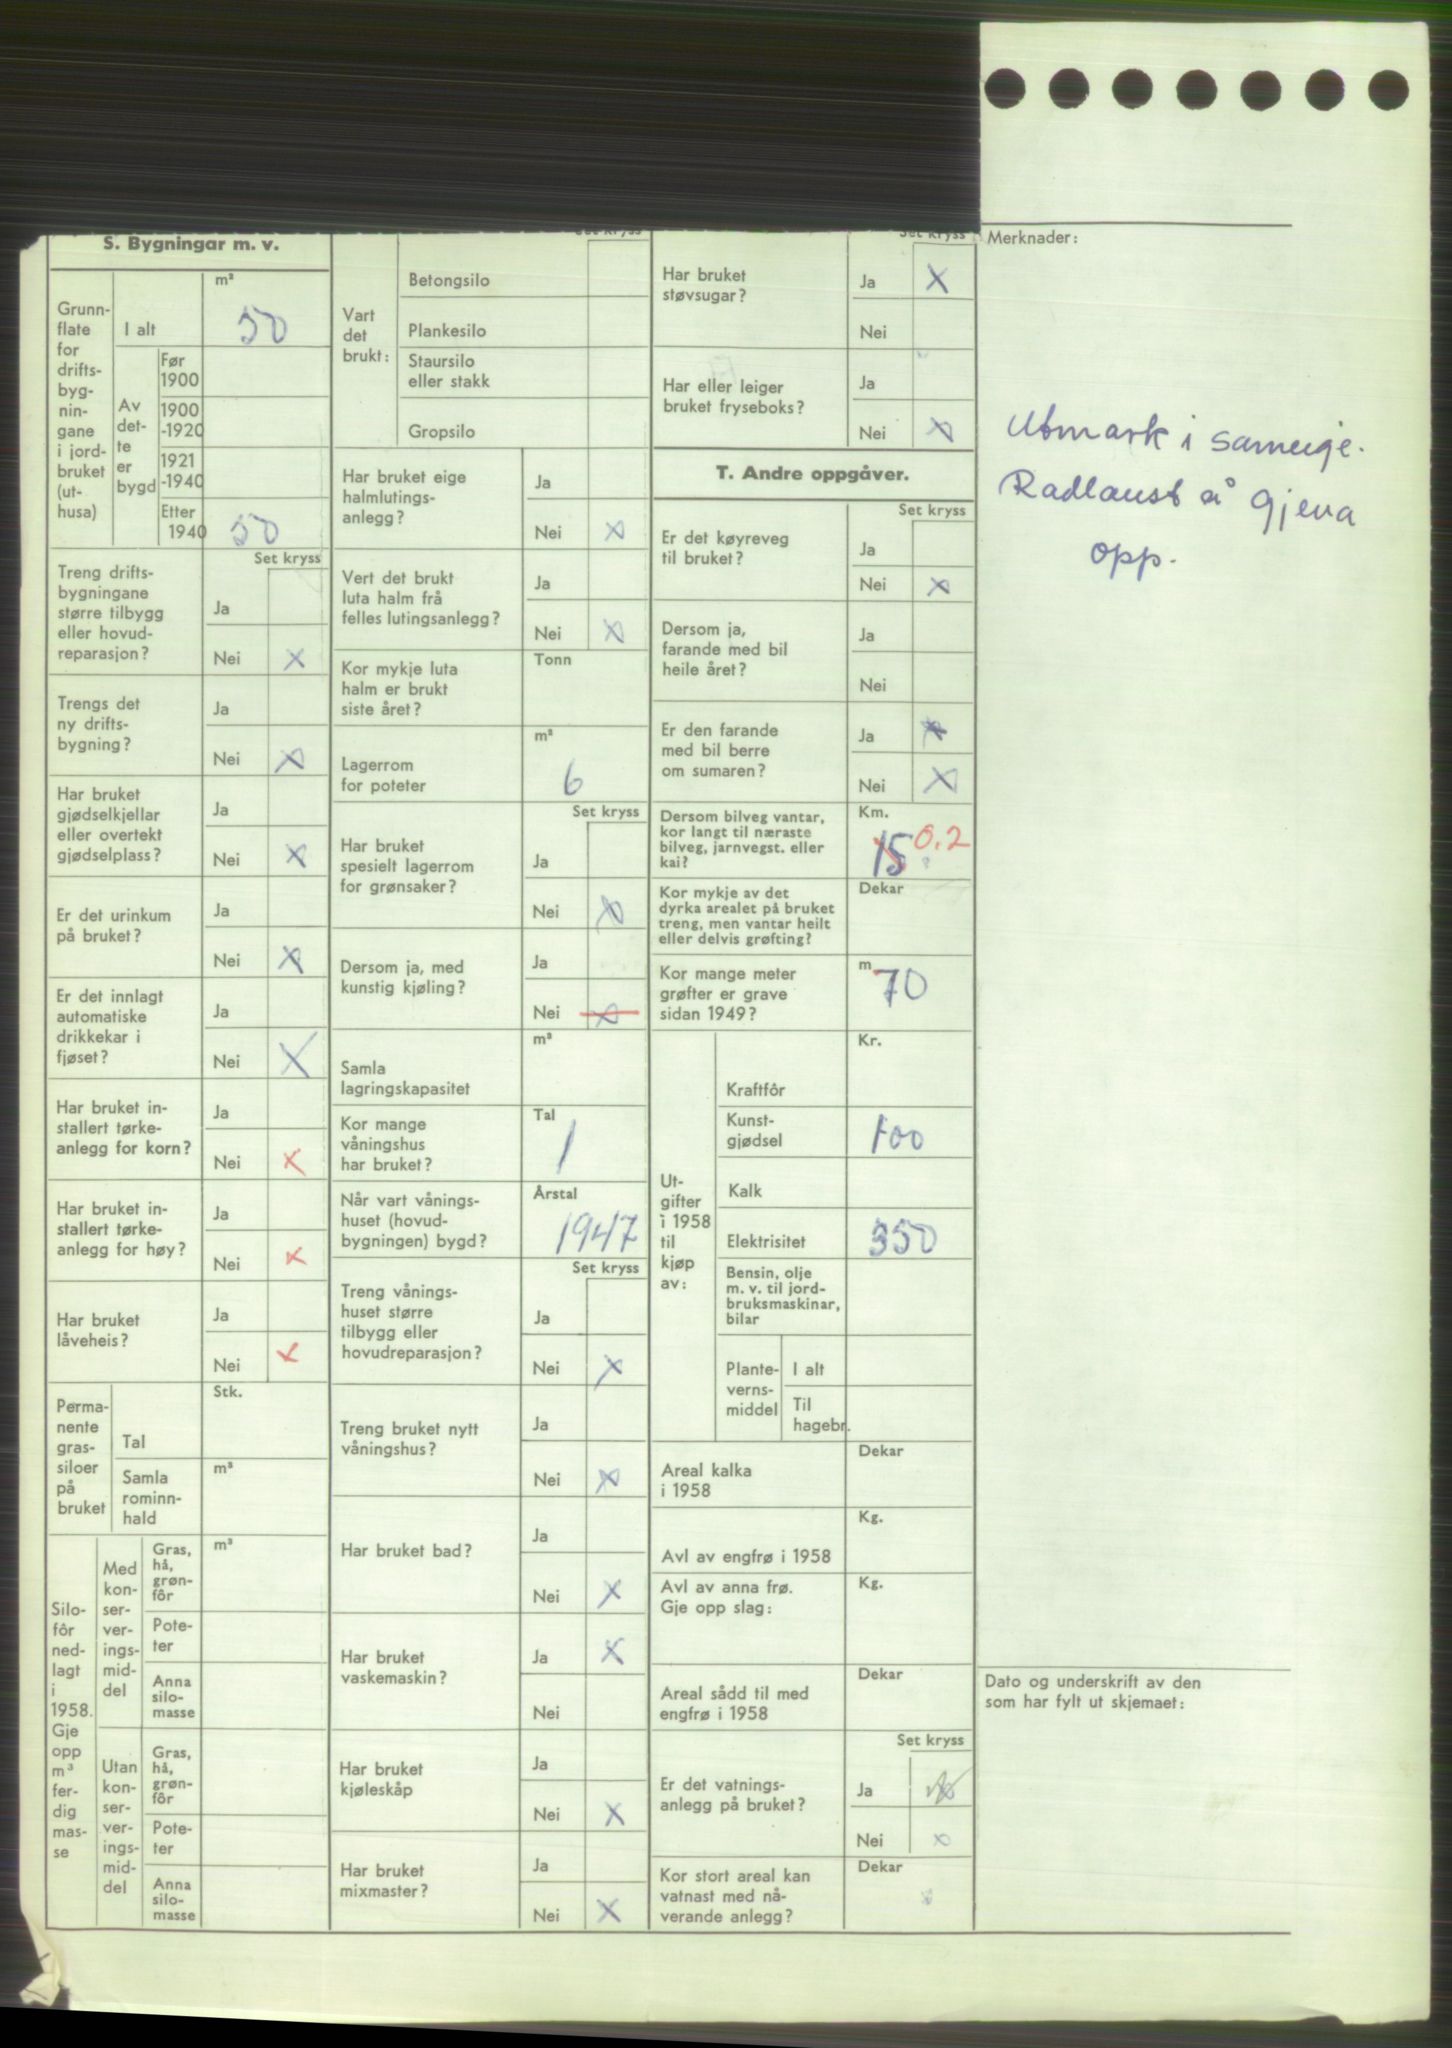 S. Bygningar m. v.
Grunn-
flate
for
drifts-
byg-
nin-
gane
i jord-
bruket
(ut-
husa)
m²
I alt
50
Av
det-
te
er
bygd
Før
1900
1900
-1920
1921
-1940
Etter
1940
50
Set kryss
Treng drifts-
bygningane
større tilbygg
eller hovud-
reparasjon?
Ja
Nei X
Trengs det
ny drifts-
bygning?
Ja
Nei X
Har bruket
gjødselkjellar
eller overtekt
gjødselplass?
Ja
Nei X
Er det urinkum
på bruket?
Ja
Nei X
Er det innlagt
automatiske
drikkekar i
fjøset?
Ja
Nei X
Har bruket in-
stallert tørke-
anlegg for korn?
Ja
Nei X
Har bruket in-
stallert tørke-
anlegg for høy?
Ja
Nei X
Har bruket
låveheis?
Ja
Nei X
Perma-
nente
gras-
siloer
på
bruket
Stk.
Tal
Samla
rominn-
hald
m³
Silo-
fôr
ned-
lagt
i
1958.
Gje
opp
m³
fer-
dig
mas-
se
Med
kon-
ser-
ver-
ings-
mid-
del
Gras,
hå,
grøn-
fôr
m³
Pote-
ter
Anna
silo-
masse
Utan
kon-
ser-
ver-
ings-
mid-
del
Gras,
hå,
grøn-
fôr
Pote-
ter
Anna
silo-
masse
Set kryss
Vart
det
brukt:
Betongsilo
Plankesilo
Staursilo
eller stakk
Gropsilo
Har bruket eige
halmlutings-
anlegg?
Ja
Nei X
Vert det brukt
luta halm frå
felles lutingsanlegg?
Ja
Nei X
Kor mykje luta
halm er brukt
siste året?
Tonn
Lagerrom
for poteter
m²
6
Set kryss
Har bruket
spesielt lagerrom
for grønsaker?
Ja
Nei X
Dersom ja, med
kunstig kjøling?
Ja
Nei X
Samla
lagringskapasitet
m³
Kor mange
våningshus
har bruket?
Tal
1
Når vart vånings-
huset (hovud-
bygningen) bygd?
Årstal
1947
Set kryss
Treng vånings-
huset større
tilbygg eller
hovudreparasjon?
Ja
Nei X
Treng bruket nytt
våningshus?
Ja
Nei X
Har bruket bad?
Ja
Nei X
Har bruket
vaskemaskin?
Ja X
Nei
Har bruket
kjøleskåp
Ja
Nei X
Har bruket
mixmaster?
Ja
Nei X
Set kryss
Har bruket
støvsugar?
Ja X
Nei
Har eller leiger
bruket fryseboks?
Ja
Nei X
T. Andre oppgåver.
Set kryss
Er det køyreveg
til bruket?
Ja
Nei X
Dersom ja,
farande med bil
heile året?
Ja
Nei
Er den farande
med bil berre
om sumaren?
Ja X
Nei X
Dersom bilveg vantar,
kor langt til næraste
bilveg, jarnvegst. eller
kai?
Km.
15 0.2
Kor mykje av det
dyrka arealet på bruket
treng, men vantar heilt
eller delvis grøfting?
Dekar
Kor mange meter
grøfter er grave
sidan 1949?
m
70
Ut-
gifter
i 1958
til
kjøp
av:
Kr.
Kraftfôr
Kunst-
gjødsel
100
Kalk
Elektrisitet
350
Bensin, olje
m. v. til jord-
bruksmaskinar,
bilar
Plante-
verns-
middel
I alt
Til
hagebr.
Areal kalka
i 1958
Dekar
Avl av engfrø i 1958
Kg.
Avl av anna frø.
Gje opp slag:
Kg.
Areal sådd til med
engfrø i 1958
Dekar
Set kryss
Er det vatnings-
anlegg på bruket?
Ja X
Nei X
Kor stort areal kan
vatnast med nå-
verande anlegg?
Dekar
Merknader:
Utmark i sameige.
Radlaust å gjeva
opp.
Dato og underskrift av den
som har fylt ut skjemaet: